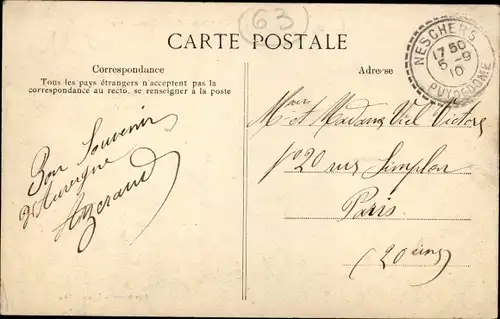 63
CARTE POSTALE
Correspondance
Tous les pays étrangers n'acceptent pas la
correspondance au recto, se renseigner à la poste
Adresse
NESCHERS
17 50
5 -9
10
PUY-DE-DOME
Bon Souvenir
d'Auvergne
Mr et Madame Viel Victor
20 rue Simplon
Paris
(20eme)